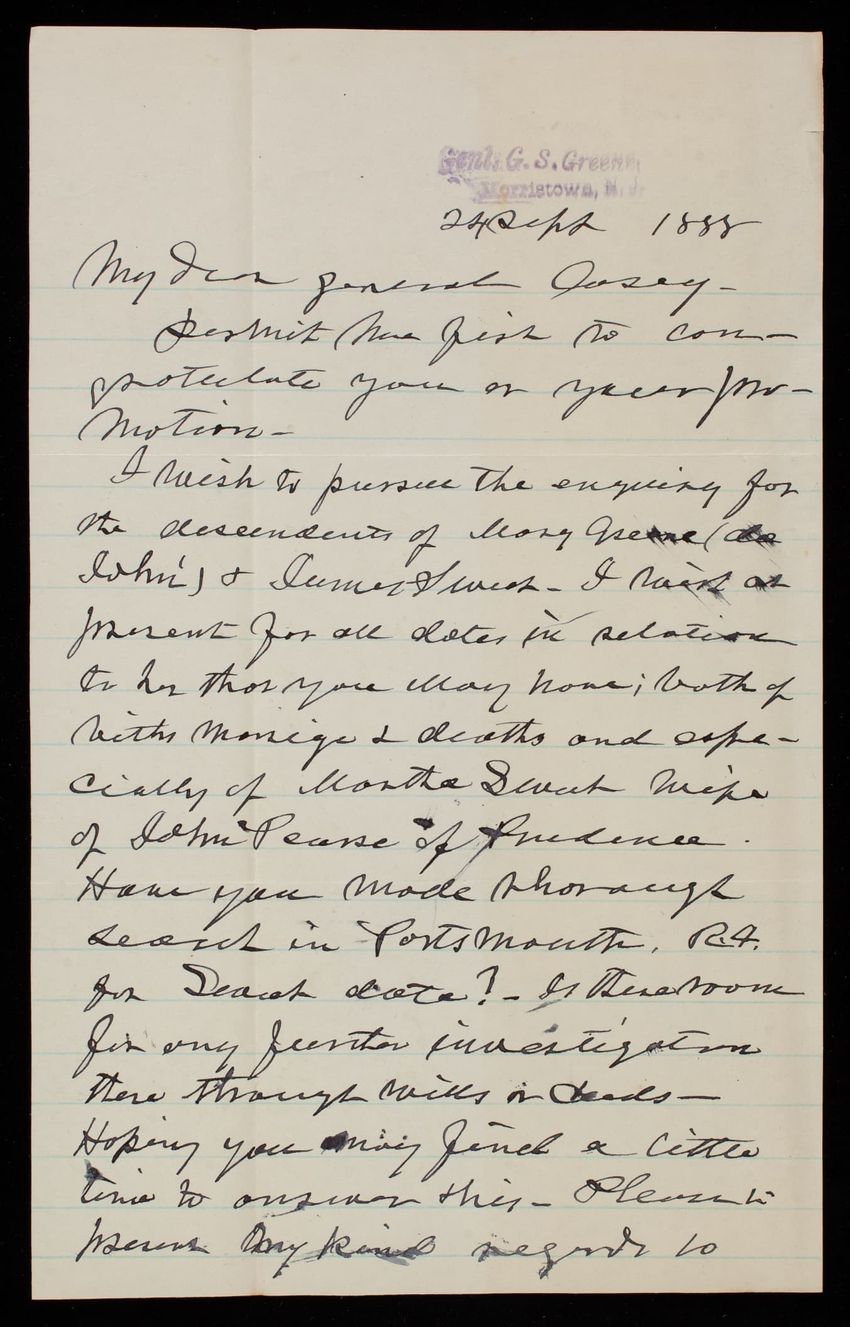 Genl. G. S. Greene,
Morristown, N. J.
24 Sept 1888
My Dear general Casey -
Permit me first to con-
gratulate you on your pro-
motion -
I wish to pursue the enquiry for
the descendents of Mary Greene (da
John) & James Sweet - I wish at
present for all dates in relation
to her that you may have; both of
births marriage & deaths and espe-
cially of Martha Sweet wife
of John Pearse of Prudence.
Have you made thorough
search in Portsmouth, R.I.
for Sweet data? - Is there room
for any further investigation
there through wills or deeds -
Hoping you may find a little
time to answer this - Please to
present my kind regards to